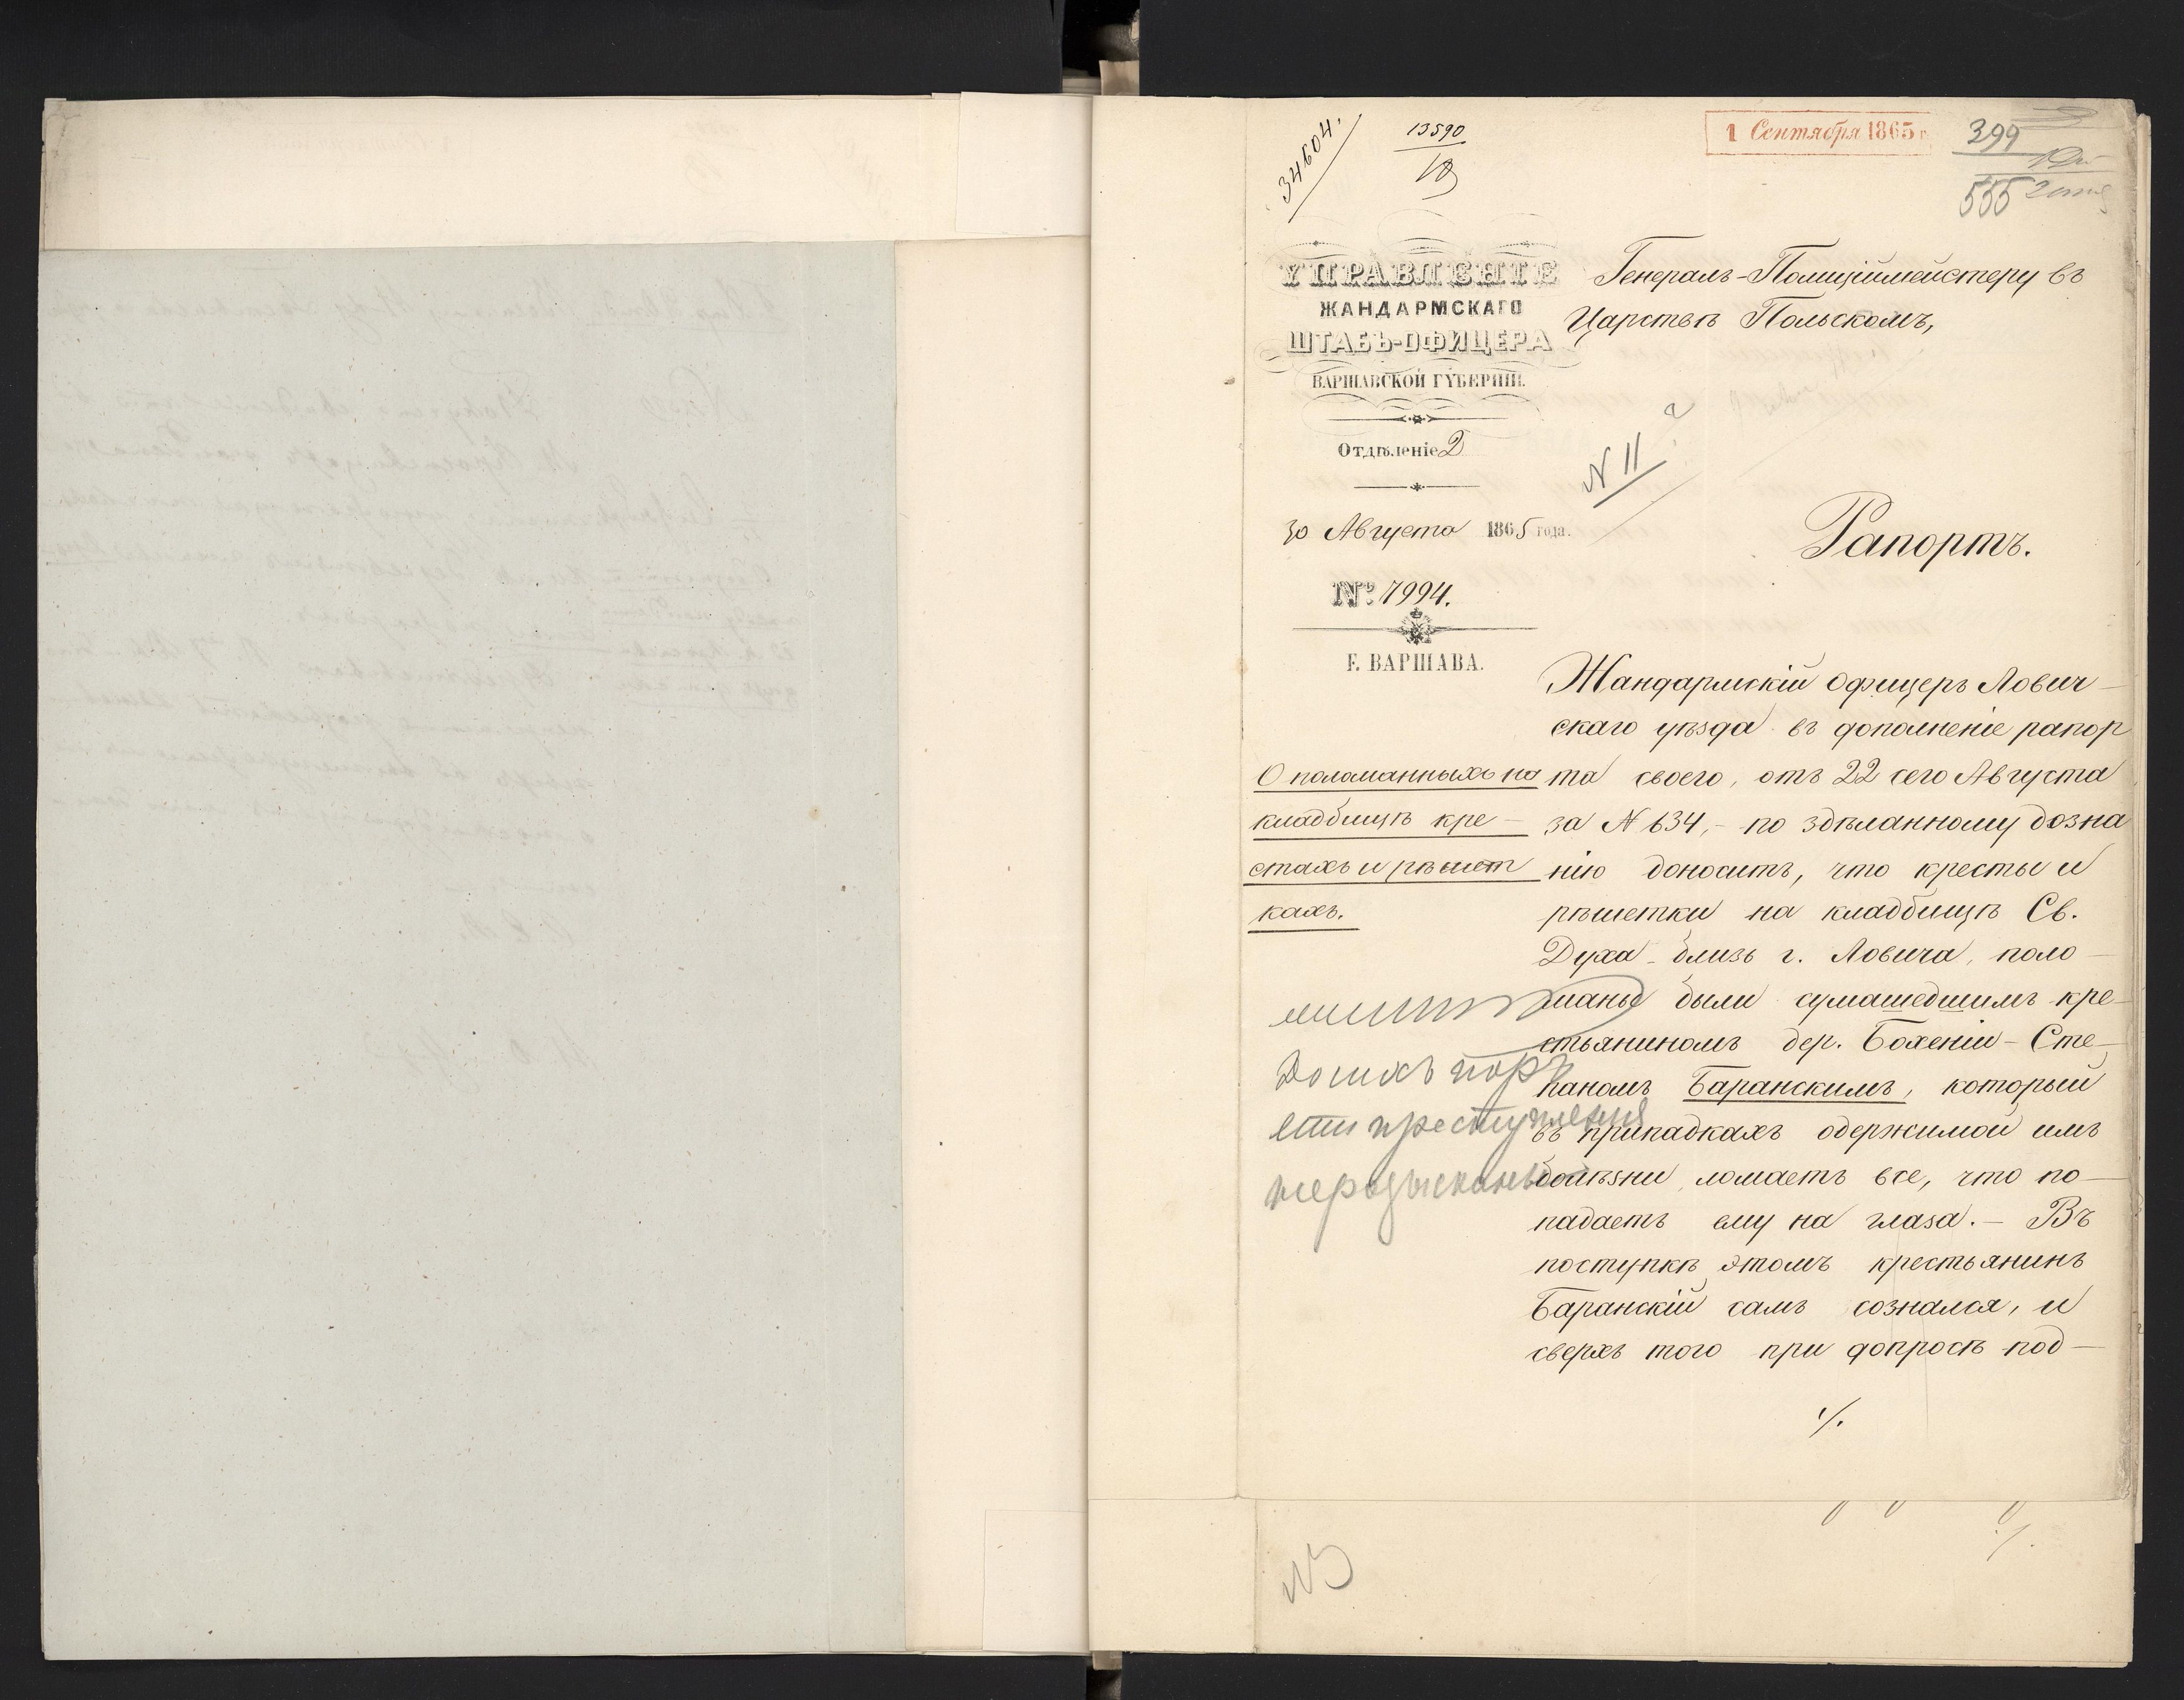 34604.
13590
1 Сентября 1865 г.
399
555
УПРАВЛЕНІЕ
ЖАНДАРМСКАГО
ШТАБЪ-ОФИЦЕРА
ВАРШАВСКОЙ ГУБЕРНІИ.
Отдѣленіе 2
30 Августа 1865 года.
№ 7994.
Г. ВАРШАВА.
N 11
Генералъ-Полиціймейстеру въ
Царствѣ Польскомъ,
Рапортъ.
О поломанныхъ на
кладбищѣ кре-
стахъ и рѣшет
кахъ.
Жандармскій офицеръ Лович-
скаго уѣзда въ дополненіе рапор
та своего, отъ 22 сего Августа
за N 634,- по здѣланному дозна
нію доноситъ, что кресты и
рѣшетки на кладбищѣ Св.
Духа близь г. Ловича, поло-
маны были сумашедшимъ кре-
стьяниномъ дер. Бохеніи - Сте-
паномъ Баранскимъ, который
въ припадкахъ одержимой имъ
болѣзни ломаетъ все, что по-
падаетъ ему на глаза. - Въ
поступкѣ этомъ крестьянинъ
Баранскій самъ сознался, и
сверхъ того при допросѣ под-
./.
N3